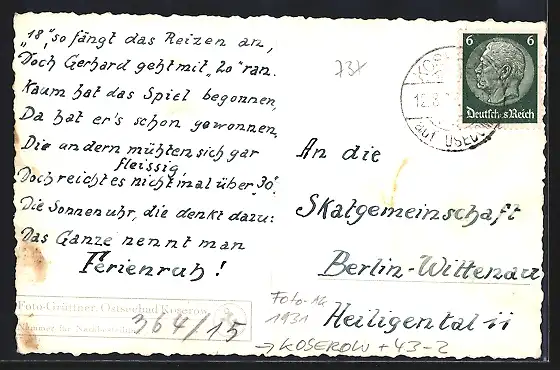 "18", so fängt das Reizen an,
Doch Gerhard geht mit "20" ran.
Kaum hat das Spiel begonnen,
Da hat er's schon gewonnen,
Die andern mühten sich gar
fleissig,
Doch reicht es nicht mal über "30".
Die Sonnenuhr, die denkt dazu:
Das Ganze nennt man
Ferienruh!
737
6 6
Deutsches Reich
12.8.
auf USED
An die
Skatgemeinschaft
Berlin-Wittenau
Heiligental ii
Foto-Grüttner, Ostseebad Koserow
Nummer für Nachbestellung
364/15
Foto-AG
1931
→ KOSEROW + 43-2